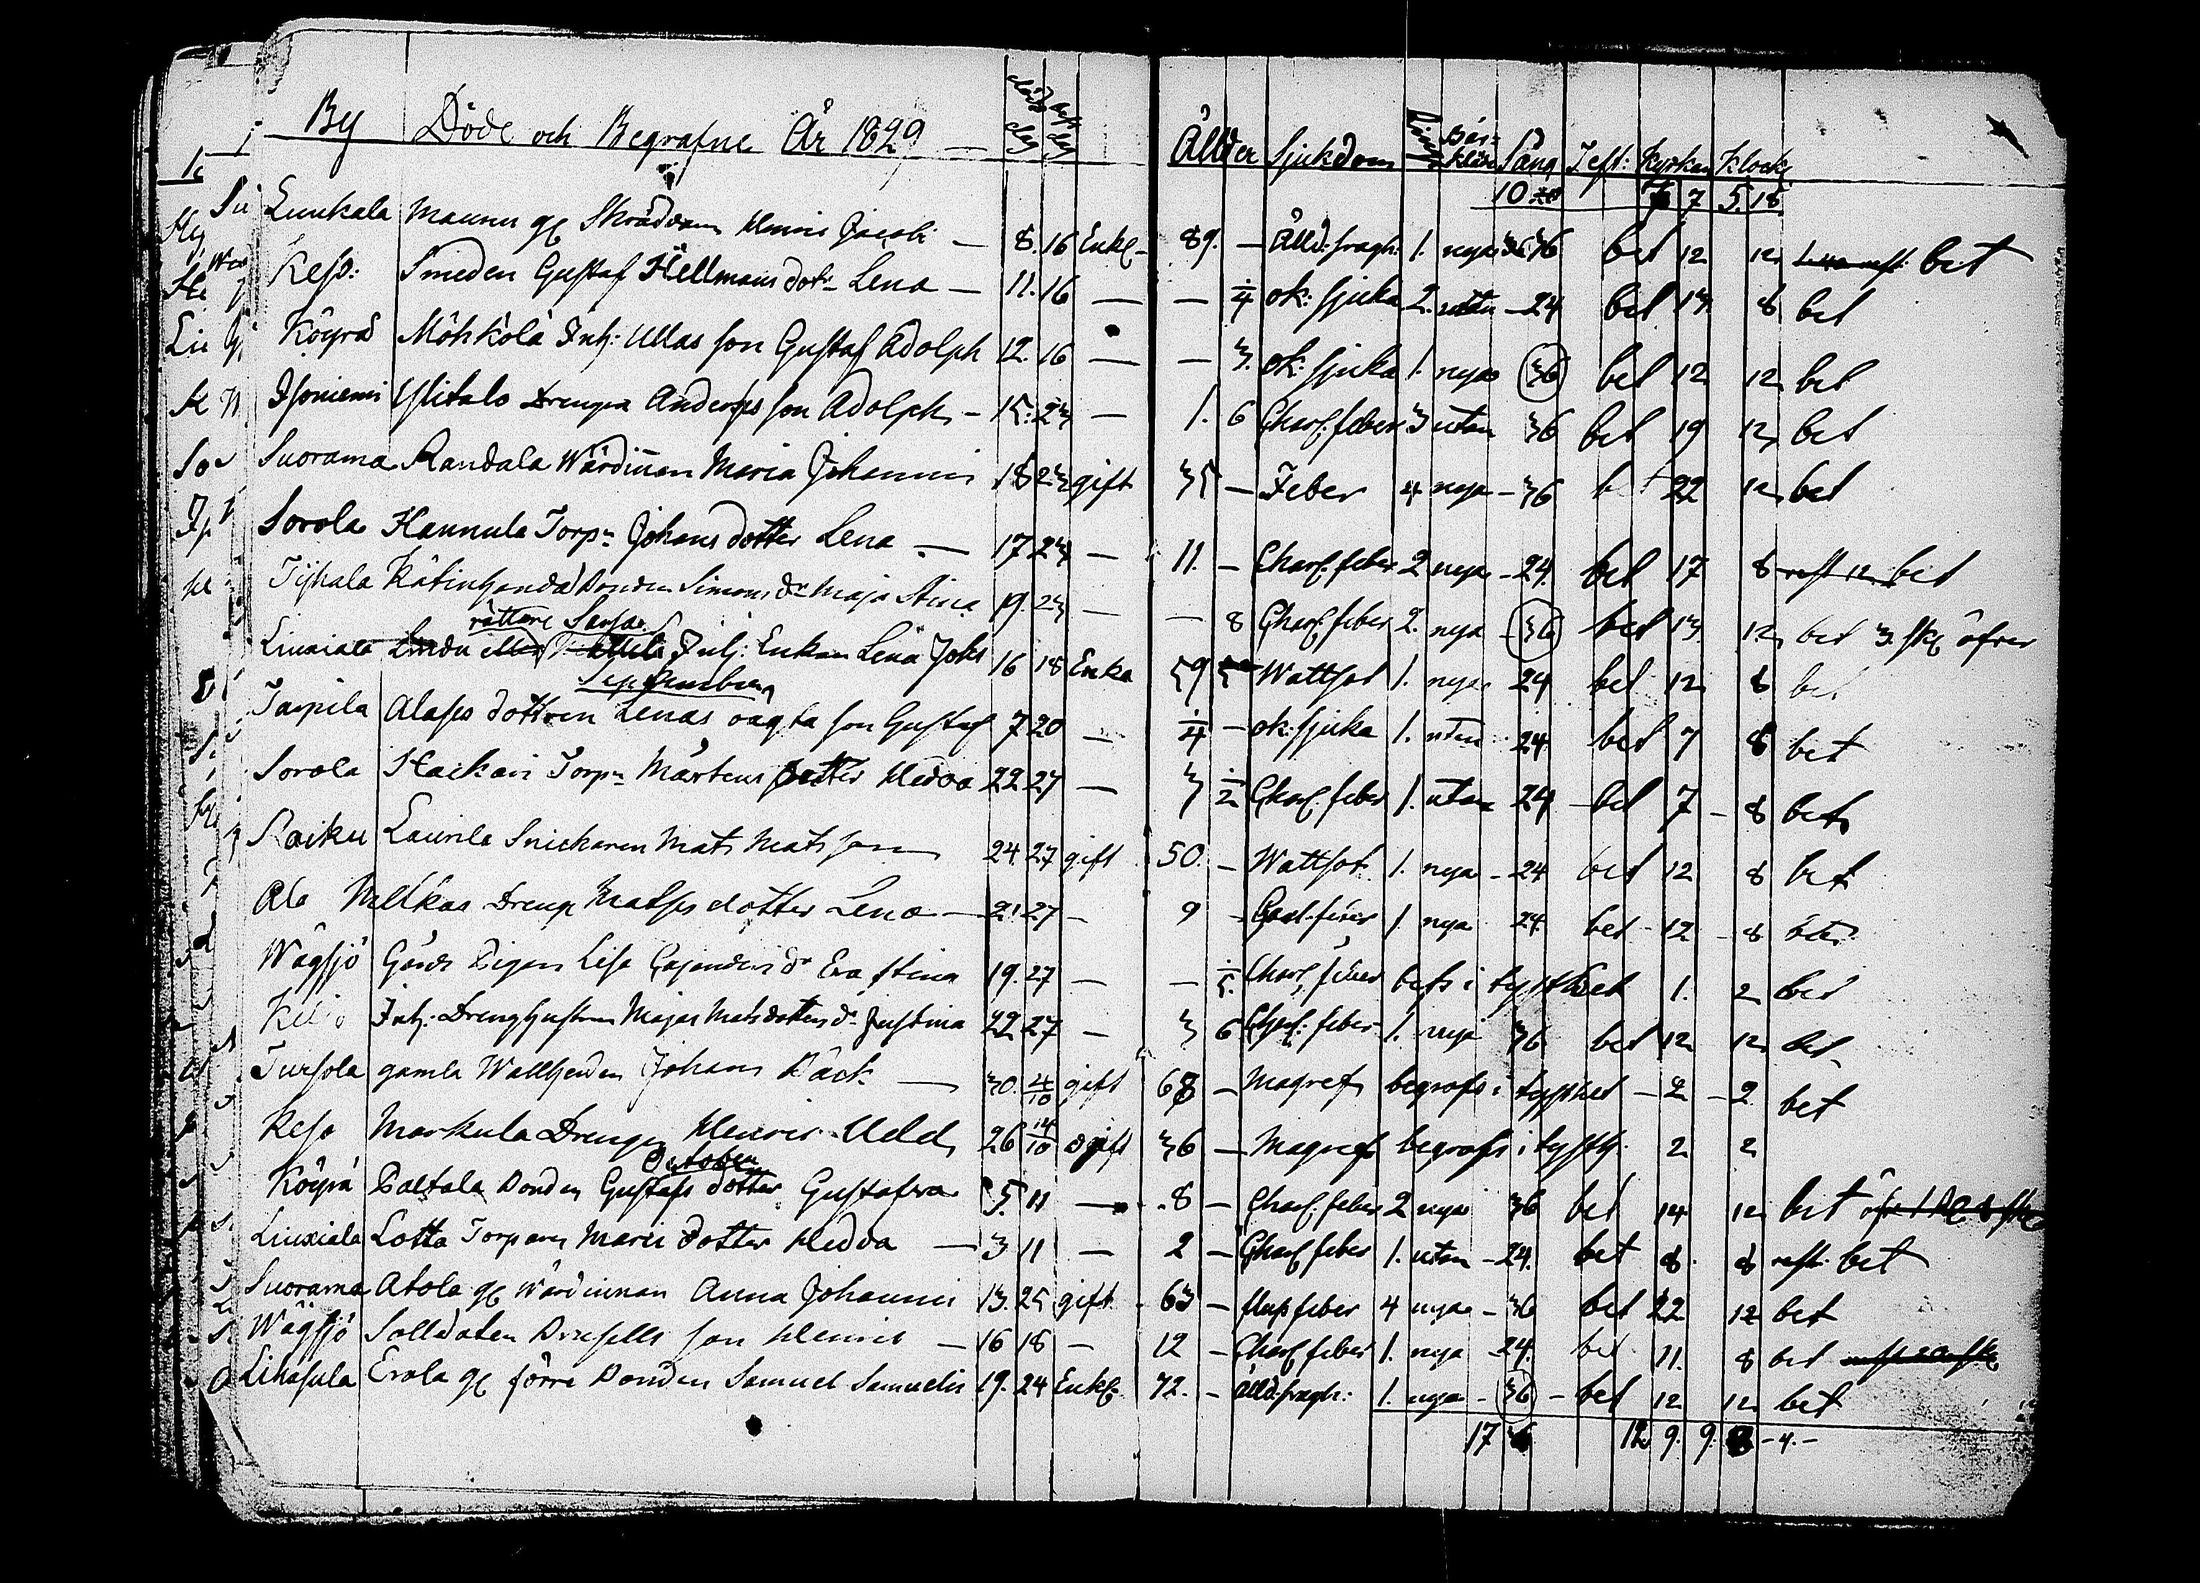 By Döde och Begrafne År 1829 döds dag begr dag Ållder Sjukdom Ring Bår-kläde Sång Test: Kyrkan Klock
10 7 5. 18
Luukala Maunu gl Skräddaren Henric Jacobi — 8. 16 Enkl. 89. — Ålld: fragh: 1. nya 36 bet 12 12 bet
Keso: Smeden Gustaf Hellmans dotr Lena — 11. 16 — — ¼ ok: sjuka 2. utan 24 bet 13 8 bet
Köyrä Möhkölä Inh: Ullas son Gustaf Adolph 12. 16 — — 3. ok: sjuka 1. nya 36 bet 12 12 bet
Isoniemi Ylitalo Drengen Anderss son Adolph — 15. 23 — 1. 6 Charl. feber 3 utan 36 bet 19 12 bet
Suorama Randala Wärdinnan Maria Johanni 18 23 gift 35 — Feber 4 nya — 36 bet 22 12 bet
Sorola Hannula Torpn Johans dotter Lena — 17 23 — 11. — Charl. feber 2 nya — 24. bet 17 8 rest 12 bet
Tyhala Bonden Simons dr Maja Stina 19. 23 — — 8 Charl. feber 2. nya — 36 bet 13. 12 bet 3. sk öfver
rättare
Liuxiala Inh: Enkan Lena Johs 16 18 Enka 59 Wattsot 1. nya 24 bet 12 8 bet
September
Tarpila Alases dottren Lenas oägta son Gustaf 7 20 — ¼ — ok: sjuka 1. utan 24 bet 7 8 bet
Sorola Hackari Torpn Mårtens dotter Hedva 22 27 — 3 ½ Charl. feber 1. utan 24 bet 7 — 8 bet
Raiku Laurila Snickaren Mats Matsson 24. 27 gift 50. — Wattsot 1. nya — 24 bet 12 8 bet
Ala Drengn Matses dotter Lena — 21 27 — 9 — feber 1. nya 24. bet — 12 — 8 bet
Wägsjö Gårds Pigan Lisa dr Eva Stina 19. 27 — — Charl. feber begrs i tysthet 1. 2 bet
Inh: Drenghustrun Majas Matsdotters dr Justina 22 27 — 3 6 Charl. feber 1. nya 36 bet 12 12 bet
Tursola gamla Wallherden Johan Bäck — 30. 4/10 gift 68 — Magref begrafs i tysthet — 2 — 2 bet
Keso Markula Drengen Henric 26 14/10 ogift 36 — Magref begrafs i tysth. 2 2
October
Köyrä Paltala Bonden Gustafs dotter Gustafva 5. 11 — 8 — Charl. feber 2 nya 36 bet 14 12 bet
Liuxiala Lotta Torparen Maria dotter Hedva — 3 11 — 2 — Charl feber 1. utan — 24. bet 8. 8 rest. bet
Suorama Atola gl Wärdinnan Anna Johanni 13. 25 gift. 63 — feber 4 nya — 36 bet 22 12 bet
Wägsjö Solldaten son Henric — 16 18 — 12 — Charl feber 1. nya 24. bet 11. 8 bet
Lihasula Erola gl förre Bonden Samuel Samuelis 19. 24 Enkl. 72. — Ålld: fragh: 1. nya — 36 — bet 12 12 bet
17 12 9. 9. 8 — 4. —